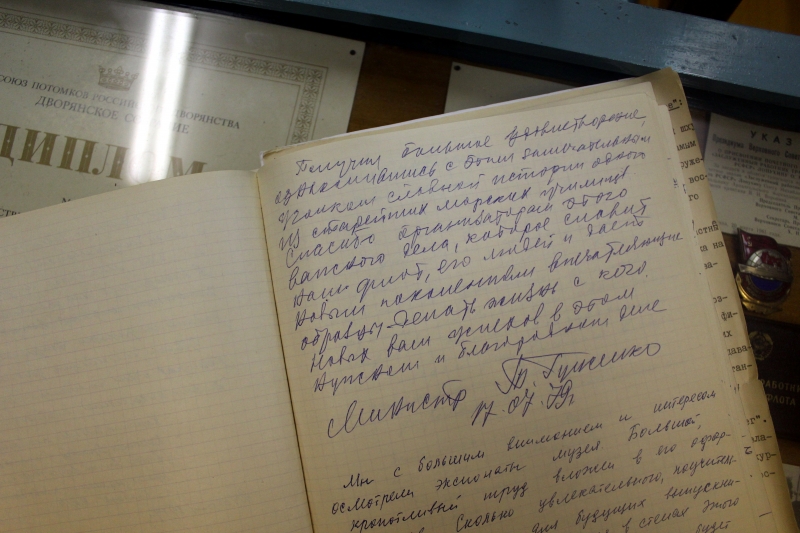 СОЮЗ ПОТОМКОВ РОССИЙСКОГО ДВОРЯНСТВА
ДВОРЯНСКОЕ СОБРАНИЕ
ДИПЛОМ
Получил большое удовлетворение,
ознакомившись с этим замечательным
уголком славной истории одного
из старейших морских училищ
Спасибо организаторам этого
важного дела, которое славит
наш флот, его людей и дает
новым поколениям впечатляющие
образцы - делать жизнь с кого.
Новых вам успехов в этом
нужном и благородном деле
Министр Т. Гуженко
17.07.79г
Мы с большим вниманием и интересом
осмотрели экспонаты музея. Большой,
кропотливый труд вложен в его офор-
Сколько увлекательного, поучитель-
для будущих выпускни-
в стенах этого
будет
УКАЗ